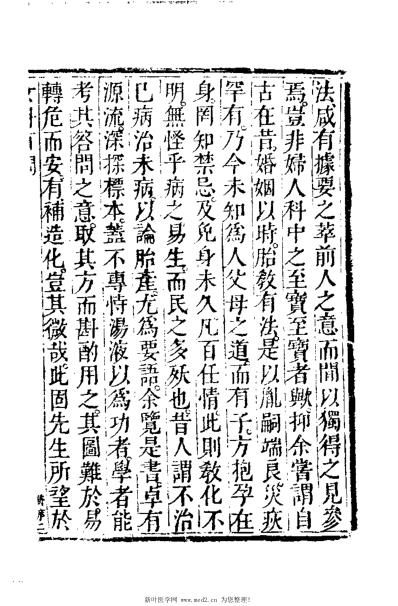 法咸有據要之萃前人之意而間以獨得之見參
焉豈非婦人科中之至寶至寶者歟抑余嘗謂自
古在昔婚姻以時胎教有法是以胤嗣端良災疢
罕有乃今未知為人父母之道而有子方抱孕在
身罔知禁忌及免身未久凡百任情此則教化不
明無怪乎病之易生而民之多殀也昔人謂不治
已病治未病以論胎產尤為要語余覽是書卓有
源流深探標本蓋不專恃湯液以為功者學者能
考其答問之意取其方而斟酌用之其圖難於易
轉危而安有補造化豈其微哉此固先生所望於
新叶医学网 www.med2.cn 为您整理!